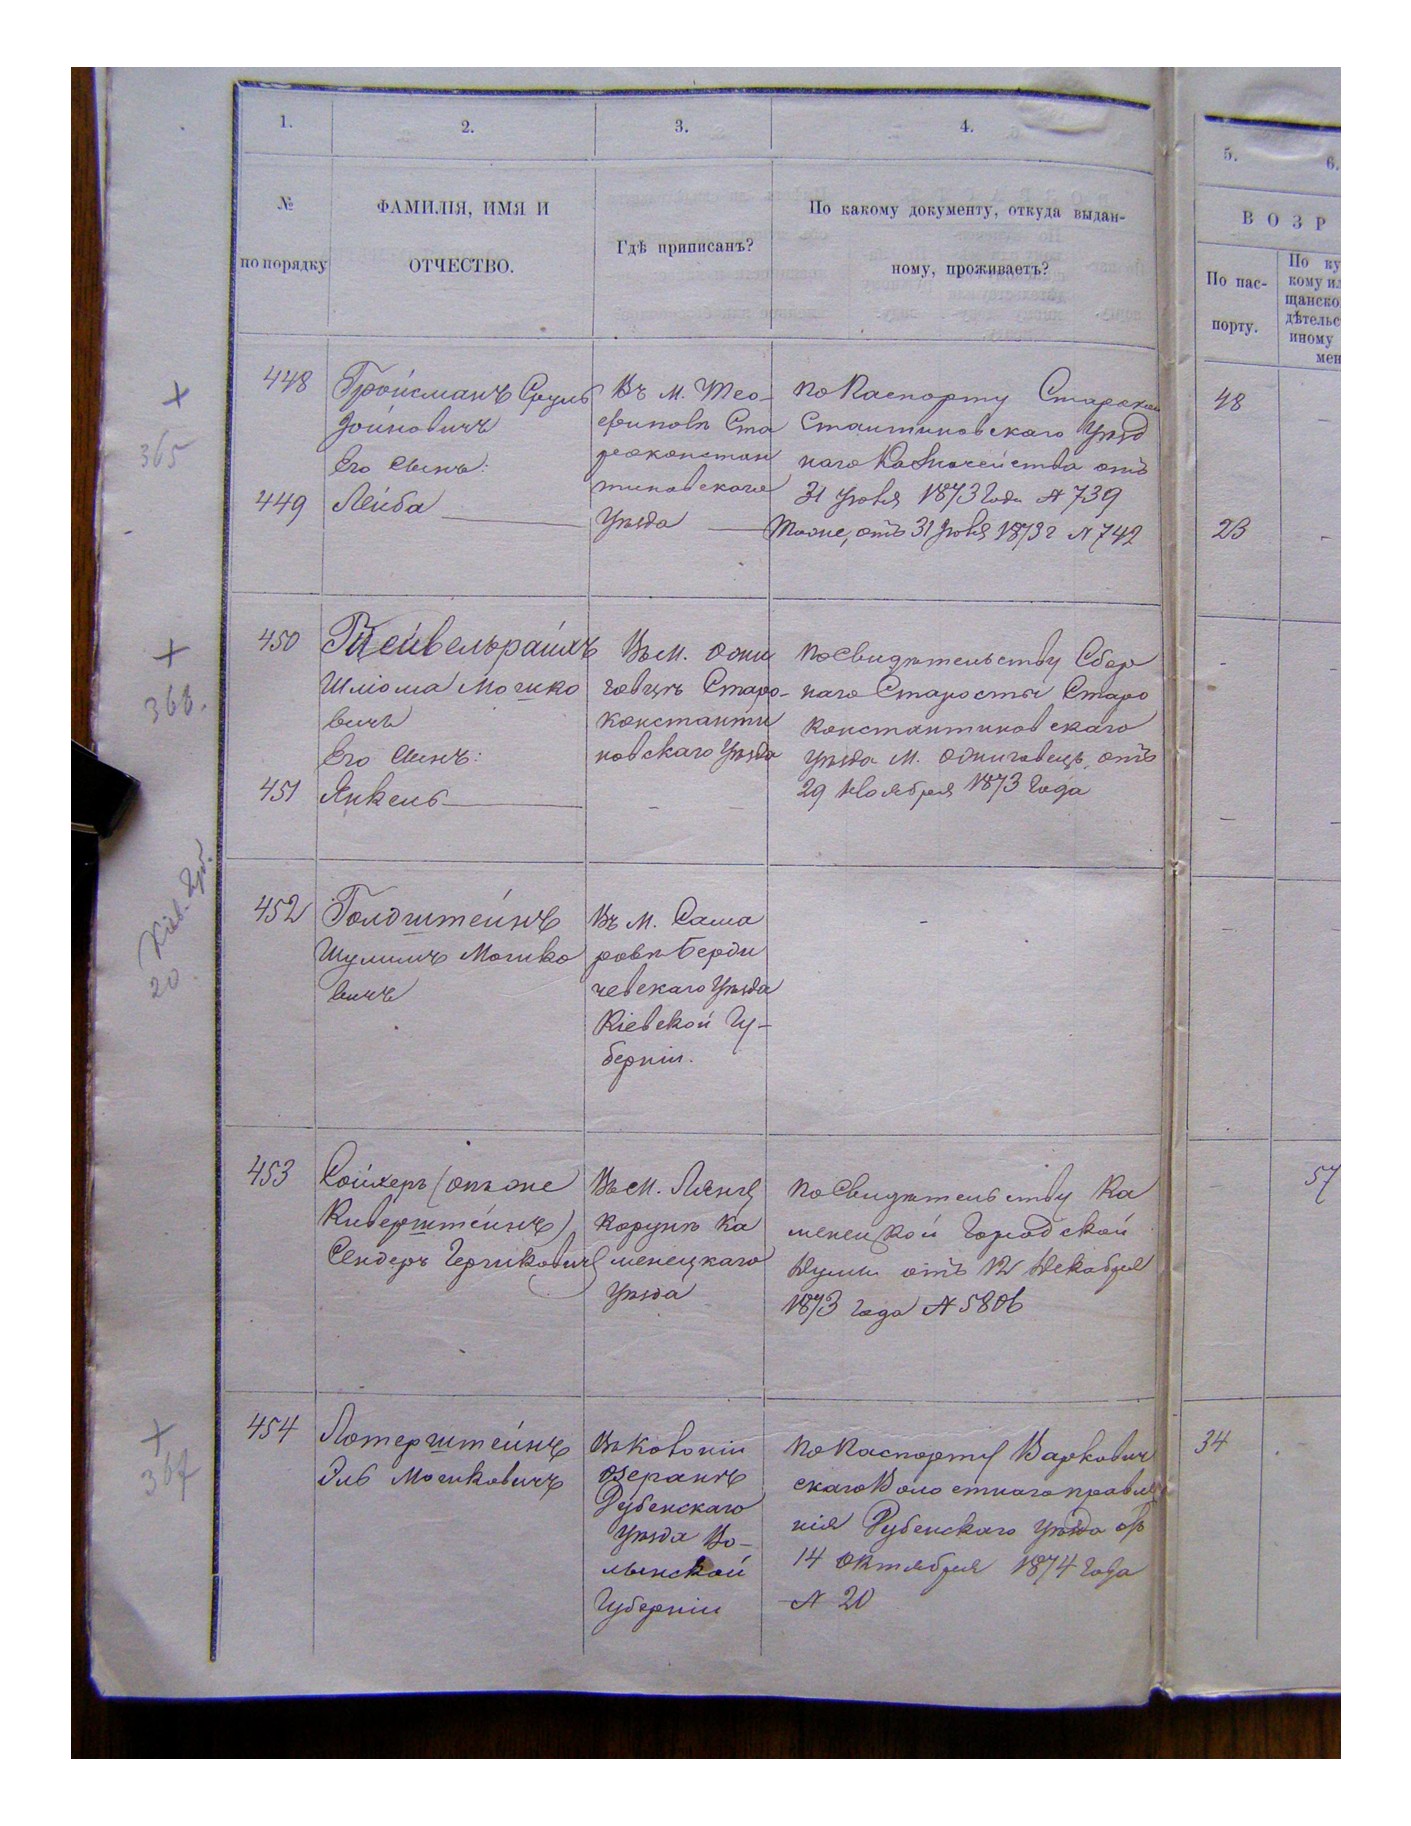 1.
2.
3.
4.
5.
6.
№
по порядку
ФАМИЛІЯ, ИМЯ И
ОТЧЕСТВО.
Гдѣ приписанъ?
По какому документу, откуда выдан-
ному, проживаетъ?
ВОЗР
По пас-
порту.
По ку
кому ил
щанско
дѣтельс
иному
мен
365
448
Гройсманъ Сруль
Іойновичъ
Его сынъ:
449
Лейба
Въ м. Тео-
фиполѣ Ста
роконстан
тиновскаго
Уѣзда
по Паспорту Старокон
стантиновскаго Уѣзд
наго Казначейства отъ
31 Іюля 1873 Года № 739
Тоже, отъ 31 Іюля 1873 г № 742
48
23
366.
450
Гпейвельрайхъ
Шліома Мошко
вичъ
Его сынъ:
451
Янкель
Въ м. Ожи
говцѣ Старо-
константи
новскаго Уѣзда
по Свидѣтельству Сбор
наго Старосты Старо
константиновскаго
Уѣзда м. Ожиговецъ, отъ
29 Ноября 1873 Года
Кіев. Губ.
20
452
Голдштейнъ
Шулимъ Мошко
вичъ
Въ м. Сама
ровѣ Берди
чевскаго Уѣзда
Кіевской Гу-
берніи.
453
Сойхеръ (онъ же
Киверштейнъ)
Сендеръ Гершковичъ
Въ м. Лянц
корунѣ Ка
менецкаго
Уѣзда
по Свидѣтельству Ка
менецкой Городской
Думы отъ 12 Декабря
1873 года № 5806
57
367
454
Лотерштейнъ
Эль Мошковичъ
Въ Колоніи
Озеранѣ
Дубенскаго
Уѣзда Во-
лынской
Губерніи
по Паспорту Варкович
скаго Волостнаго правле
нія Дубенскаго Уѣзда отъ
14 Октября 1874 Года
№ 20
34